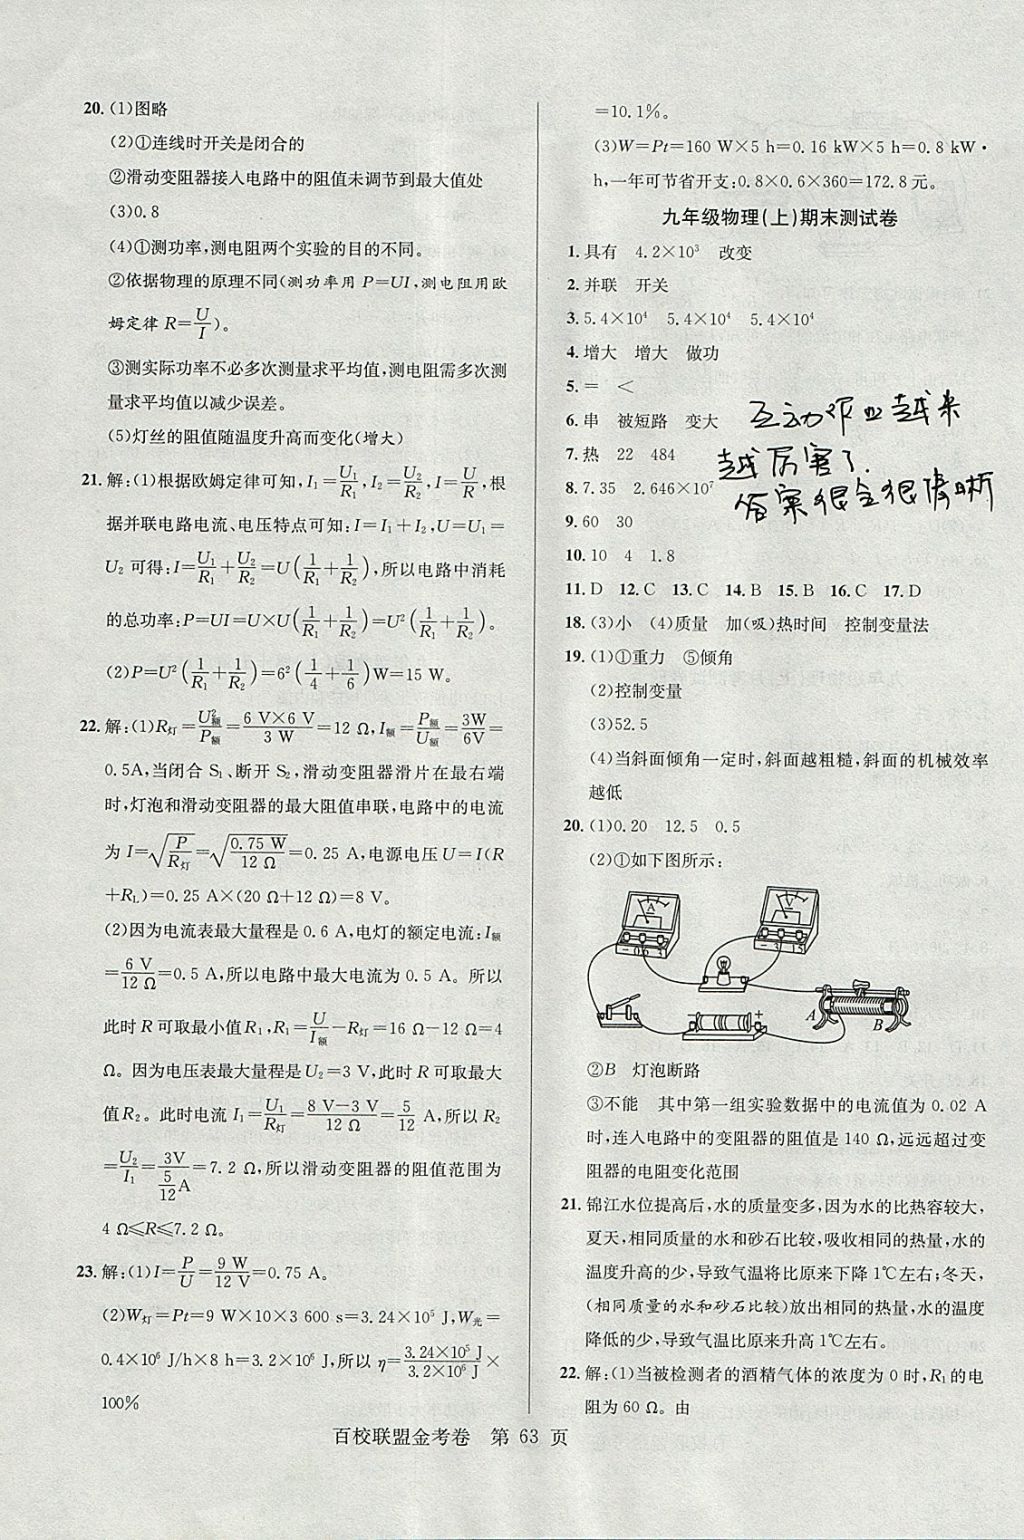 20. (1)图略
(2)①连线时开关是闭合的
②滑动变阻器接入电路中的阻值未调节到最大值处
(3)0.8
(4)①测功率,测电阻两个实验的目的不同。
②依据物理的原理不同(测功率用 P=UI,测电阻用欧
姆定律 R=U/I)。
③测实际功率不必多次测量求平均值,测电阻需多次测
量求平均值以减少误差。
(5)灯丝的阻值随温度升高而变化(增大)
21. 解:(1)根据欧姆定律可知,I₁=U₁/R₁,I₂=U₂/R₂,I=U/R,根
据并联电路电流、电压特点可知:I=I₁+I₂,U=U₁=
U₂ 可得:I=U₁/R₁+U₂/R₂=U(1/R₁+1/R₂),所以电路中消耗
的总功率:P=UI=U×U(1/R₁+1/R₂)=U²(1/R₁+1/R₂)。
(2)P=U²(1/R₁+1/R₂)=6²(1/4+1/6)W=15 W。
22. 解:(1)R灯=U²额/P额=6 V×6 V/3 W=12 Ω,I额=P额/U额=3W/6V=
0.5A,当闭合 S₁、断开 S₂,滑动变阻器滑片在最右端
时,灯泡和滑动变阻器的最大阻值串联,电路中的电流
为 I=√(P/R灯)=√(0.75 W/12 Ω)=0.25 A,电源电压 U=I(R
+R_L)=0.25 A×(20 Ω+12 Ω)=8 V。
(2)因为电流表最大量程是 0.6 A,电灯的额定电流:I额
=6 V/12 Ω=0.5 A,所以电路中最大电流为 0.5 A。所以
此时 R 可取最小值 R₁,R₁=U/I额-R灯=16 Ω-12 Ω=4
Ω。因为电压表最大量程是 U₂=3 V,此时 R 可取最大
值 R₂。此时电流 I₁=U₁/R灯=8 V-3 V/12 Ω=5/12 A,所以 R₂
=U₂/I₁=3V/(5/12 A)=7.2 Ω,所以滑动变阻器的阻值范围为
4 Ω≤R≤7.2 Ω。
23. 解:(1)I=P/U=9 W/12 V=0.75 A。
(2)W灯=Pt=9 W×10×3 600 s=3.24×10⁵ J,W光=
0.4×10⁶ J/h×8 h=3.2×10⁶ J,所以 η=3.24×10⁵ J/3.2×10⁶ J×
100%
=10.1%。
(3)W=Pt=160 W×5 h=0.16 kW×5 h=0.8 kW·
h,一年可节省开支:0.8×0.6×360=172.8 元。
九年级物理(上)期末测试卷
1. 具有 4.2×10³ 改变
2. 并联 开关
3. 5.4×10⁴ 5.4×10⁴ 5.4×10⁴
4. 增大 增大 做功
5. = <
6. 串 被短路 变大
7. 热 22 484
8. 7.35 2.646×10⁷
互动作业越来
越厉害了.
答案很全很清晰
9. 60 30
10. 10 4 1.8
11. D 12. C 13. C 14. B 15. B 16. C 17. D
18. (3)小 (4)质量 加(吸)热时间 控制变量法
19. (1)①重力 ⑤倾角
(2)控制变量
(3)52.5
(4)当斜面倾角一定时,斜面越粗糙,斜面的机械效率
越低
20. (1)0.20 12.5 0.5
(2)①如下图所示:
A V
- 0.6 3 - 3 15
+
A B
②B 灯泡断路
③不能 其中第一组实验数据中的电流值为 0.02 A
时,连入电路中的变阻器的阻值是 140 Ω,远远超过变
阻器的电阻变化范围
21. 锦江水位提高后,水的质量变多,因为水的比热容较大,
夏天,相同质量的水和砂石比较,吸收相同的热量,水的
温度升高的少,导致气温将比原来下降 1℃左右;冬天,
(相同质量的水和砂石比较)放出相同的热量,水的温度
降低的少,导致气温比原来升高 1℃左右。
22. 解:(1)当被检测者的酒精气体的浓度为 0 时,R₁的电
阻为 60 Ω。由
百校联盟金考卷 第 63 页